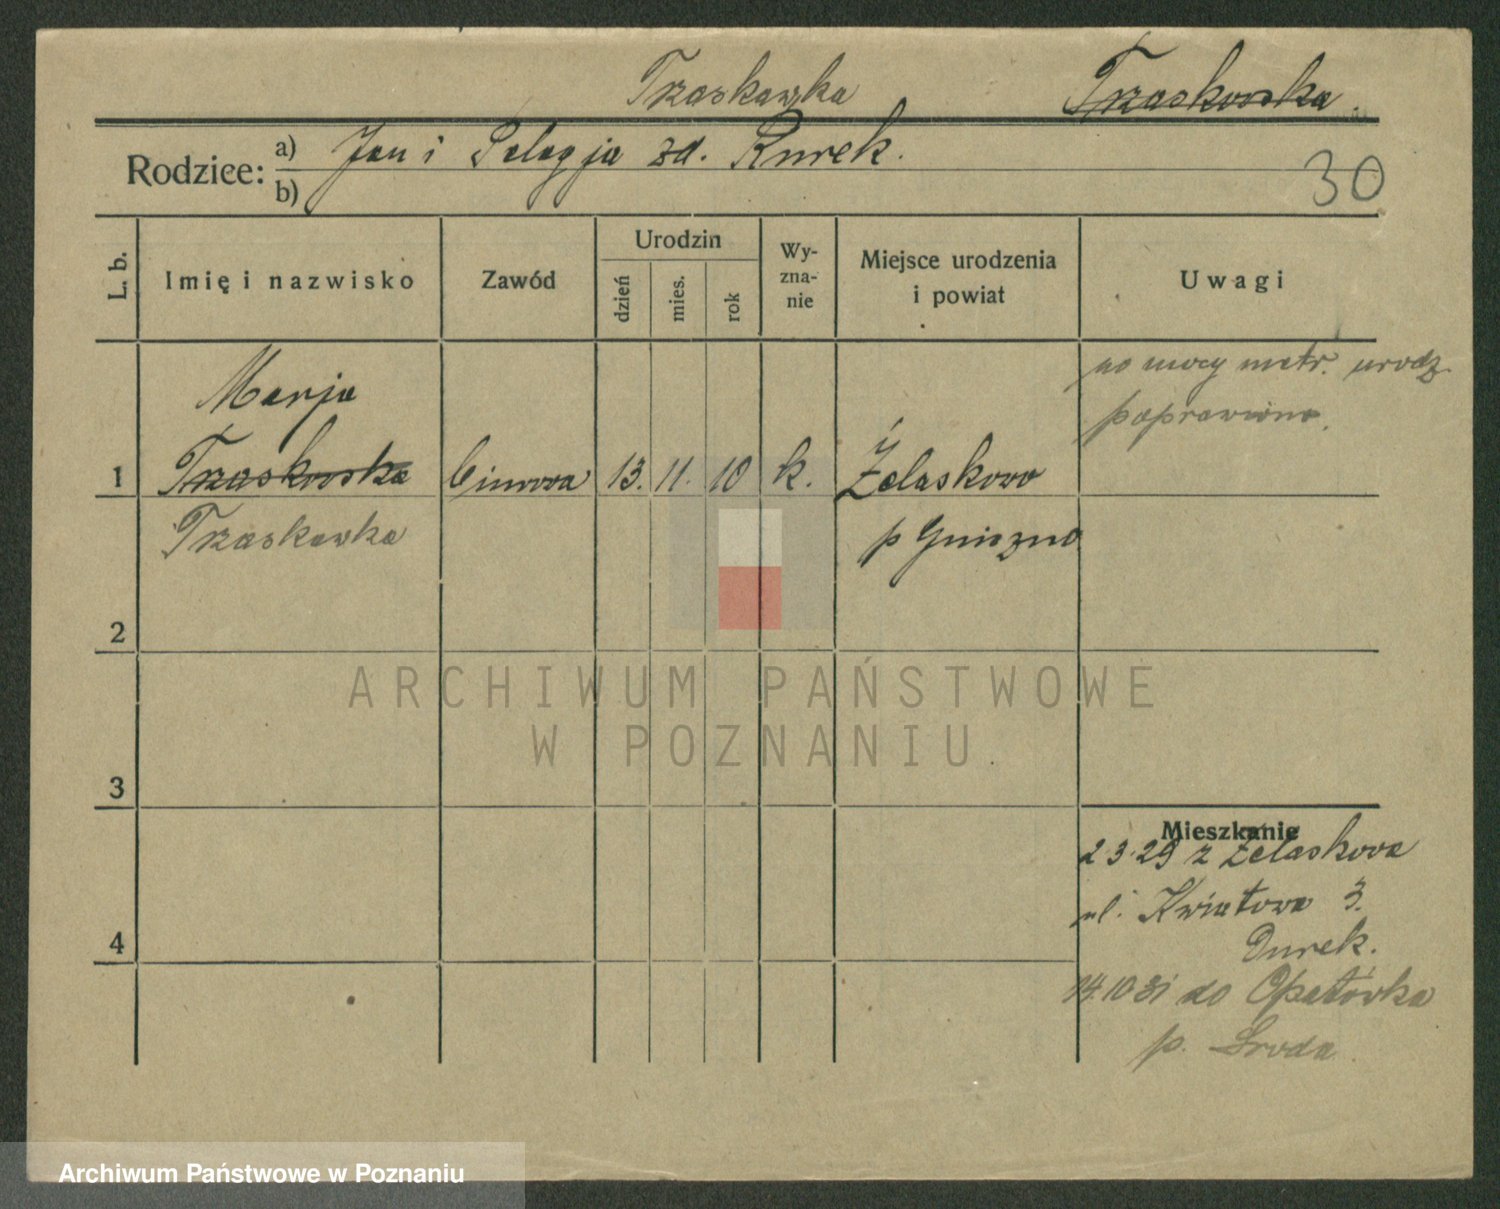 Trzaskawka Trzaskowska
Rodzice: a) Jan i Pelagja zd. Kurek.
b)
30
L. b. Imię i nazwisko Zawód Urodzin dzień mies. rok Wyznanie Miejsce urodzenia i powiat Uwagi
na mocy metr. urodz.
poprawiono.
Marja
1 Trzaskowska 13. 11. 10 k. Żelaskowo
Trzaskawka p Gniezno
2
ARCHIWUM PAŃSTWOWE
W POZNANIU
3
Mieszkanie
2 3.29 z Żelaskowa
ul. Kwiatowa 3.
4
Durek.
14.10 31 do Opatówka
p. Środa.
Archiwum Państwowe w Poznaniu